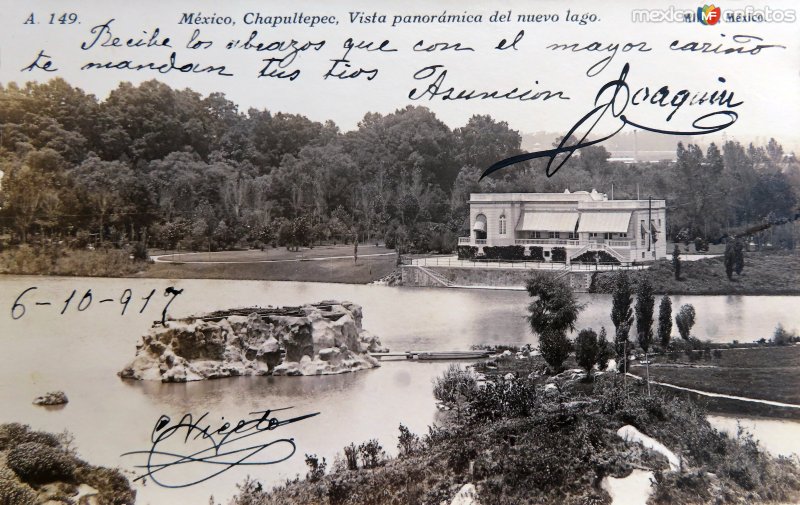 A. 149. México, Chapultepec, Vista panorámica del nuevo lago. México.
mexicoenfotos.com
Recibe los abrazos que con el mayor cariño
te mandan tus tios Asuncion Joaquin
6-10-917
Niceto
mexicoenfotos